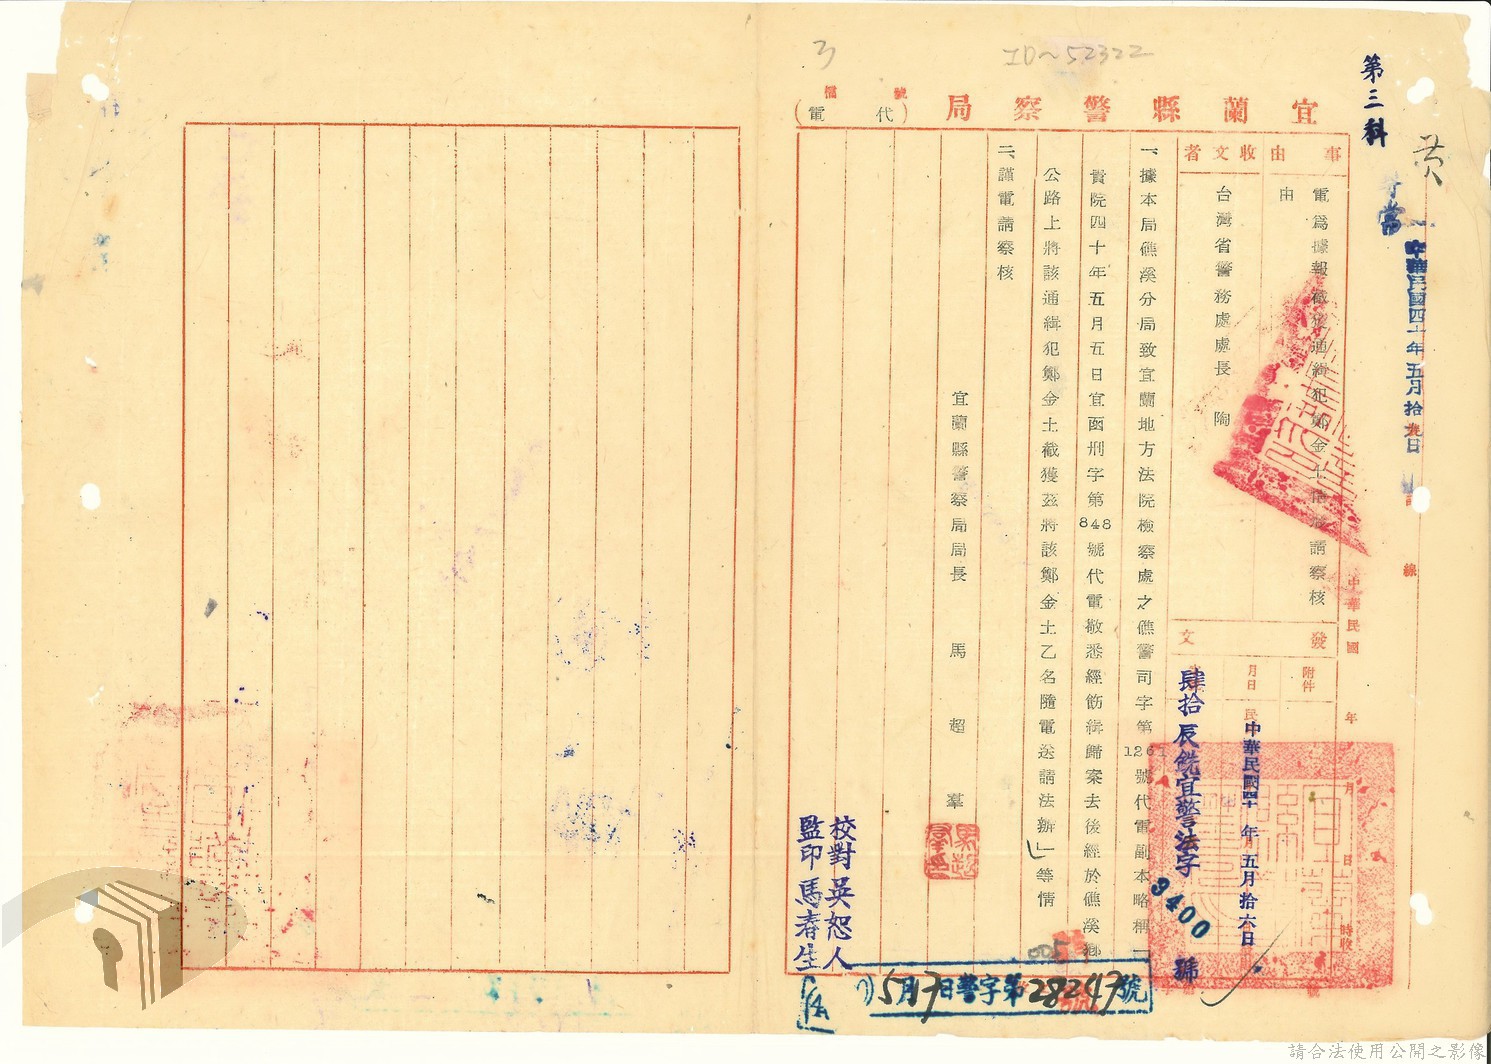 3
ID~52322
宜蘭縣警察局
(代電)
第三科
黃
中華民國四十年五月拾
事由
電為據報截獲通緝犯鄭金土請察核
由
收文者
台灣省警務處處長 陶
發文
附件
月日
中華民國四十年五月拾六日
肆拾辰銑宜警法字
3400
號
中華民國
年
月
日
時收
一、據本局礁溪分局致宜蘭地方法院檢察處之礁警司字第126號代電副本略稱「
貴院四十年五月五日宜函刑字第848號代電敬悉經飭緝歸案去後經於礁溪鄉
公路上將該通緝犯鄭金土截獲茲將該鄭金土乙名隨電送請法辦」等情
二、謹電請察核
宜蘭縣警察局局長 馬超羣
校對 吳恕人
監印 馬春生
005
5月17日警字第28247號
線
請合法使用公開之影像